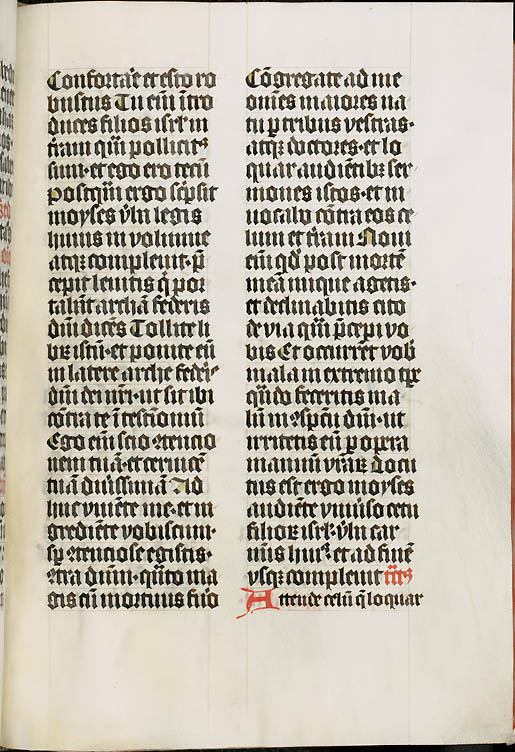 Confortare et esto ro
bustus Tu eni͂ i͂tro
duces filios isrl͂ in
t͂ram qua͂ pollicit9
sum· et ego ero tecu͂
Postqua͂ ergo sc͂psit
moyses v͂ba legis
huius in volumine
atqꝫ compleuit· p͂
cepit leuitis q͂ por
taba͂t archa͂ federis
dn͂i dice͂s Tollite li
bꝝ istu͂· et ponite eu͂
in latere arche federis
dn͂i dei nr͂i· ut sit ibi
co͂tra te i͂ testi͂oniu͂
Ego eni͂ scio ꝯtentio
nem tua͂· et ceruice͂
tua͂ durissima͂ Ad
huc viue͂te me· et in
gredie͂te vobiscum·
sp͂ ꝯtenciose egistis·
ꝯtra dn͂m· qua͂to ma
gis cu͂ mortuus fu͂o
Co͂gregate ad me
om͂es maiores na
tu p͂ tribus vestras·
atqꝫ doctores· et lo
quar audie͂tibꝫ ser
mones istos· et in
uocabo co͂tra eos ce
lum et t͂ram Noui
eni͂ qd͂ post morte͂
mea͂ inique agetis·
et declinabitis cito
de via qua͂ p͂cepi vo
bis Et occurre͂t vob͂
mala in extremo tꝑꝝ
qua͂do feceritis ma
lu͂ in ꝯspc͂u dn͂i· ut
irritetis eu͂ p͂ opera
manuu͂ vr͂aꝝ Locu
tus est ergo moyses
audie͂te vniu͂so cetu
filioꝝ isrl͂· v͂ba car
minis hui9· et ad fine͂
vsqꝫ compleuit
Attende celu͂ q͂ loquar